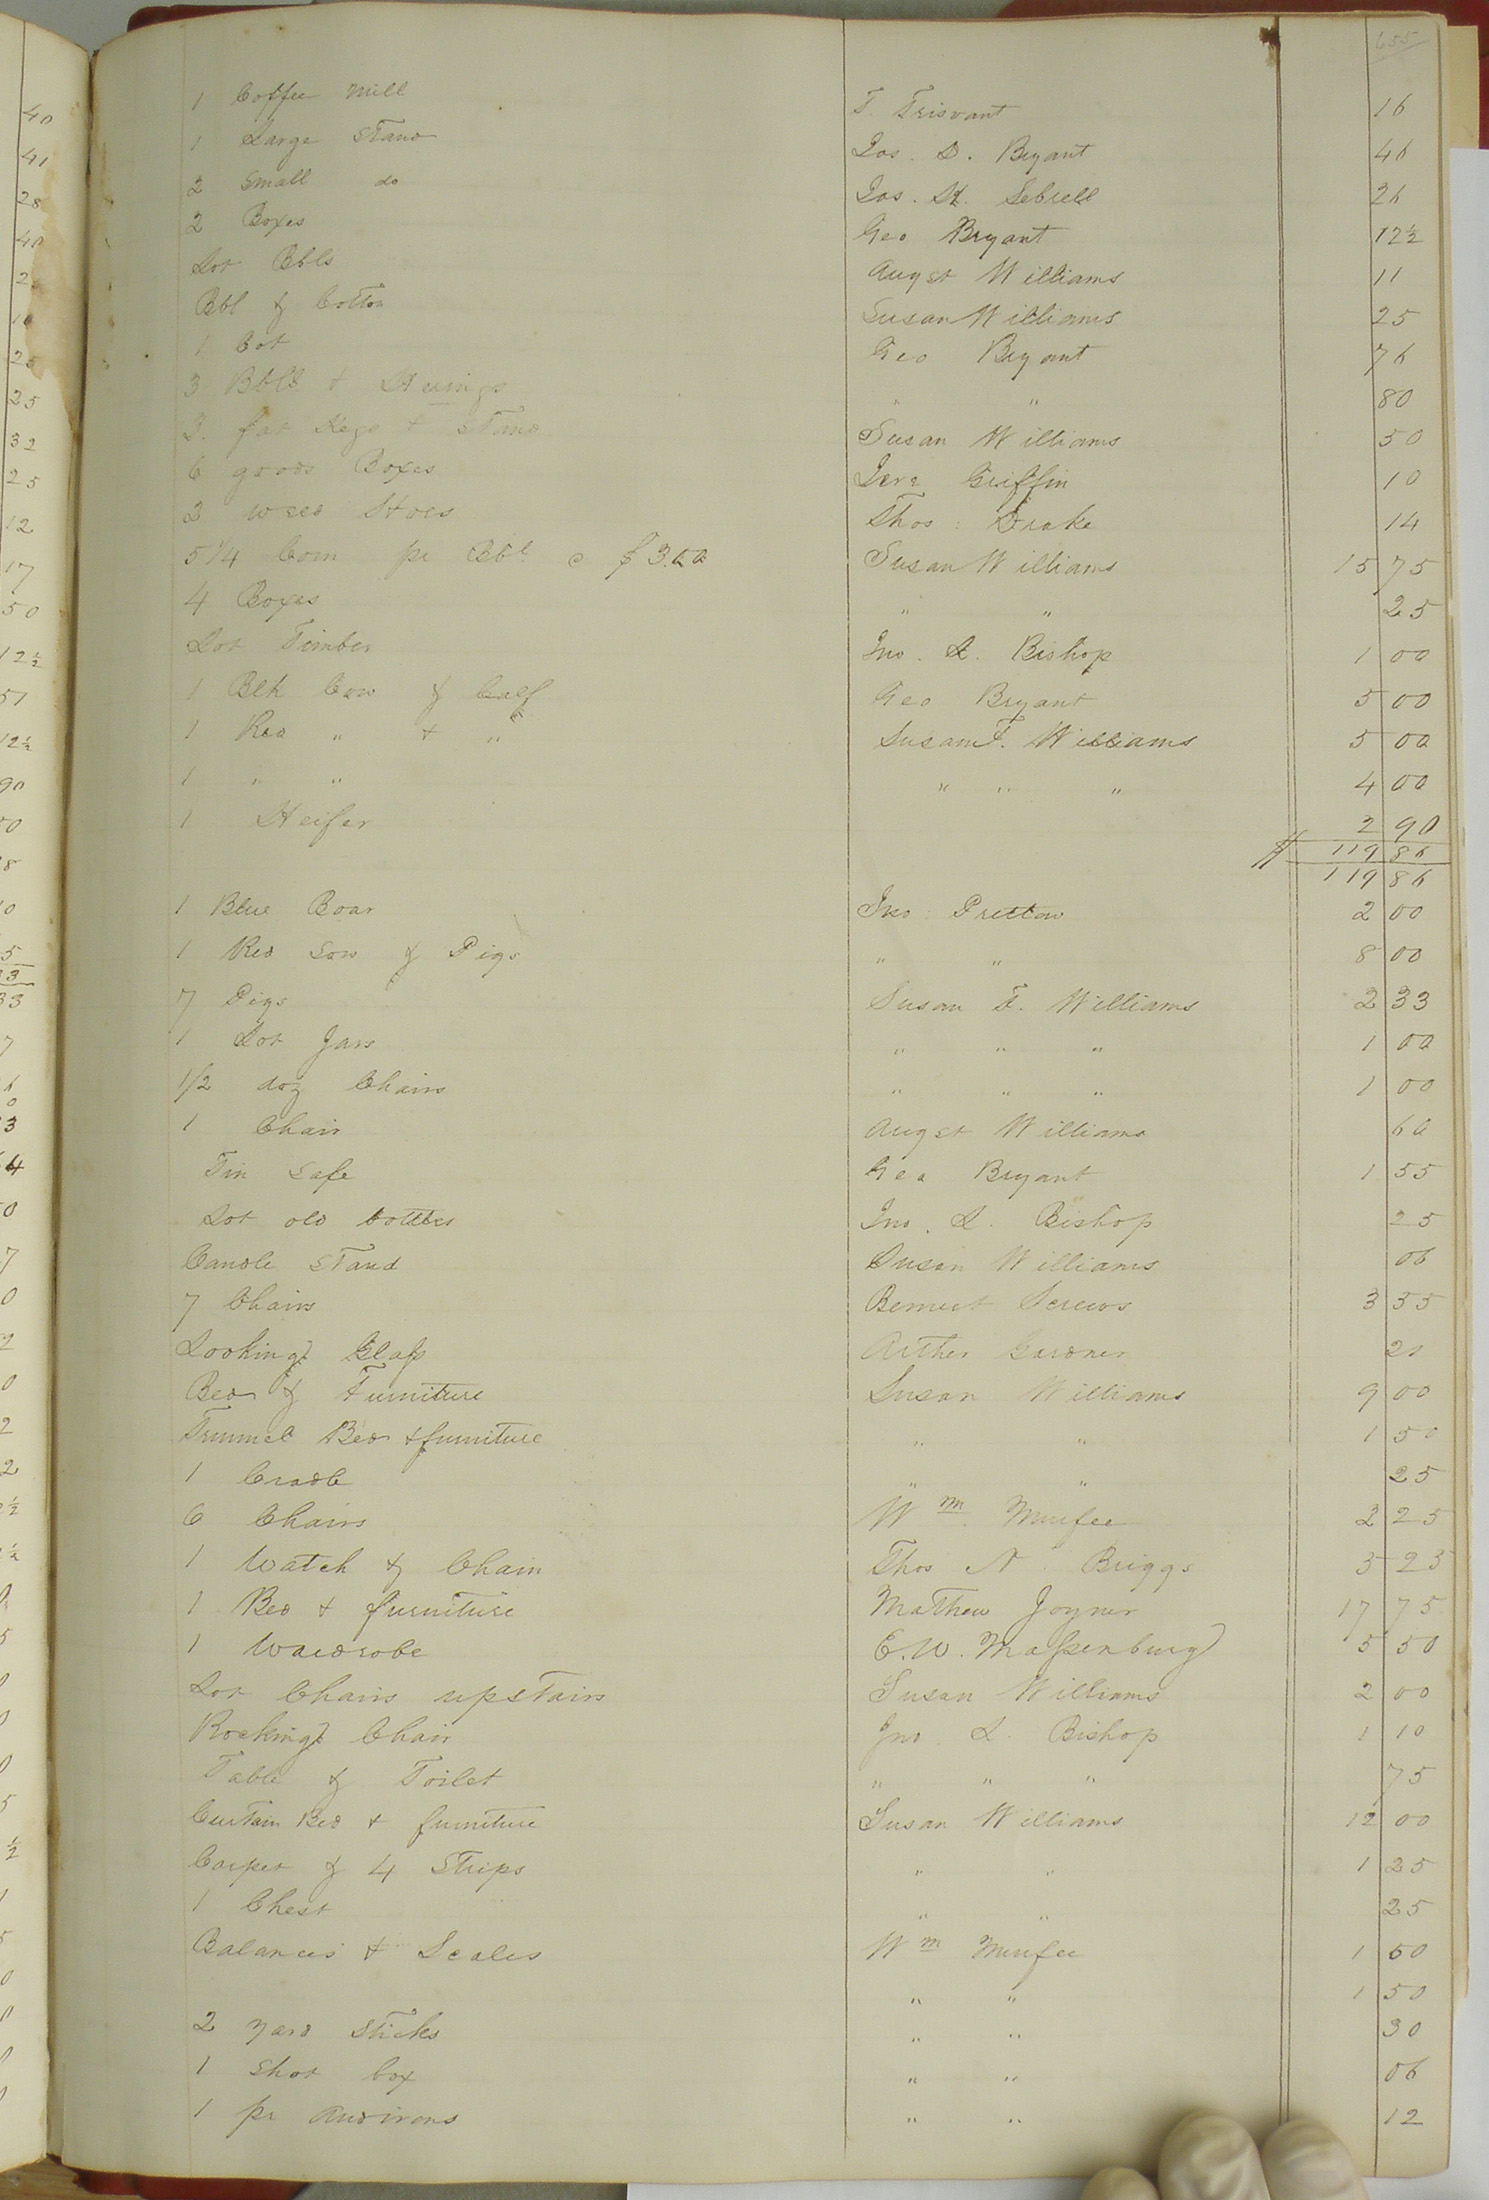 655
1 Coffee Mill T. Trisvant 16
1 Large Stand Jas. D. Bryant 46
2 Small do Jas. H. Sebrell 26
2 Boxes Geo Bryant 12½
Lot Bbls Augst Williams 11
Bbl & Cotton Susan Williams 25
1 Cot Geo Bryant 76
3 Bbls & " " 80
3 fat Kegs & Stand Susan Williams 50
6 goods Boxes Griffin 10
2 weed Hoes Thos: Drake 14
5 1/4 Corn pr Bbl @ $3.00 Susan Williams 15 75
4 Boxes " " 25
Lot Timber Jno. L. Bishop 1 00
1 Blk Cow & Calf Geo Bryant 5 00
1 Red " & " Susan F. Williams 5 00
1 " " " " " 4 00
1 Heifer 2 90
$ 119 86
119 86
1 Blue Boar Jno: Pretlow 2 00
1 Red Sow & Pigs " " 8 00
7 Pigs Susan F. Williams 2 33
1 Lot Jars " " " 1 00
1/2 doz Chairs " " " 1 00
1 Chair Augst Williams 60
Tin Safe Geo Bryant 1 55
Lot old bottles Jno. L. Bishop 25
Candle Stand Susan Williams 06
7 Chairs Screws 3 55
Looking Glass Arther Gardner 20
Bed & Furniture Susan Williams 9 00
Trunnel Bed & furniture " " 1 50
1 Cradle " " 25
6 Chairs Wm. Murfee 2 25
1 Watch & Chain Thos N. Briggs 5 25
1 Bed & furniture Mathew Joyner 17 75
1 Wardrobe E. W. Massenburg 5 50
Lot Chairs upstairs Susan Williams 2 00
Rocking Chair Jno L. Bishop 1 10
Table & Toilet " " " 75
Curtain Bed & furniture Susan Williams 12 00
Carpet & 4 Strips " " 1 25
1 Chest " " 25
Balances & Scales Wm Murfee 1 50
" " 1 50
2 yard Sticks " " 30
1 Shot box " " 06
1 pr Andirons " " 12